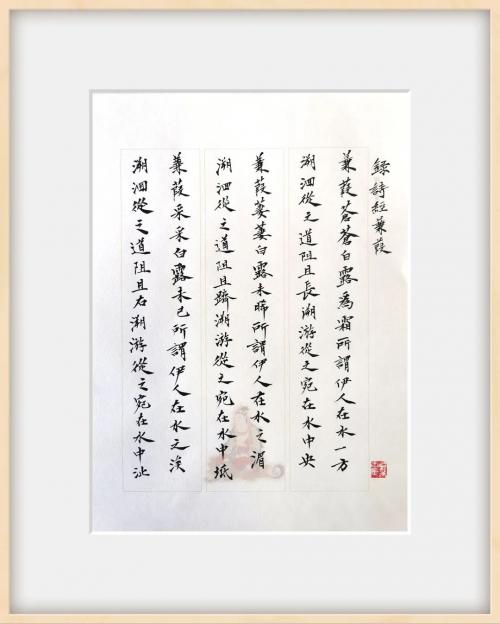 錄詩經蒹葭
蒹葭蒼蒼白露為霜所謂伊人在水一方
溯洄從之道阻且長溯游從之宛在水中央
蒹葭萋萋白露未晞所謂伊人在水之湄
溯洄從之道阻且躋溯游從之宛在水中坻
蒹葭采采白露未已所謂伊人在水之涘
溯洄從之道阻且右溯游從之宛在水中沚